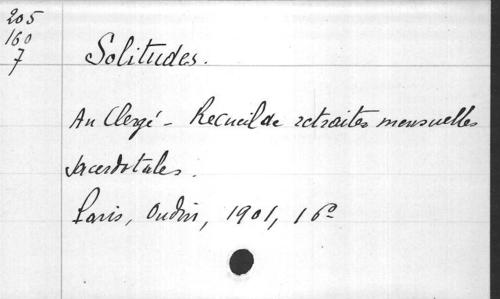 205
160
7
Solitudes.
Au Clergé - Recueil de retraites mensuelles
sacerdotales.
Paris, Oudin, 1901, 16º